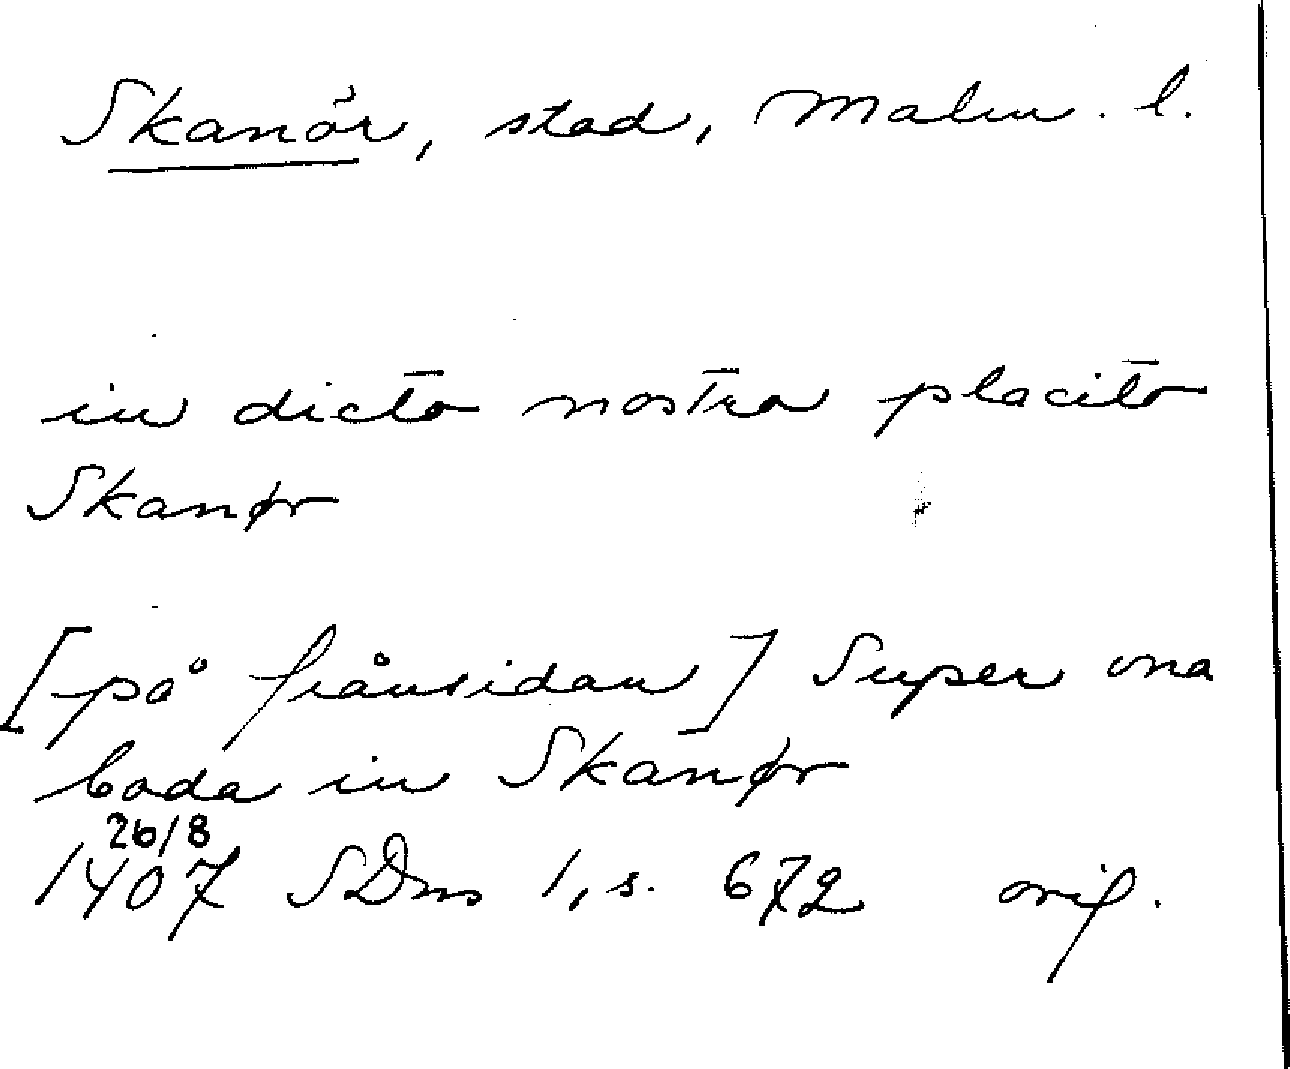 Skanör, stad, Malm. l.
in dicto nostra placito
Skanør
[på frånsidan] Super una
boda in Skanør
26/8
1407 SDns 1, s. 672 orig.